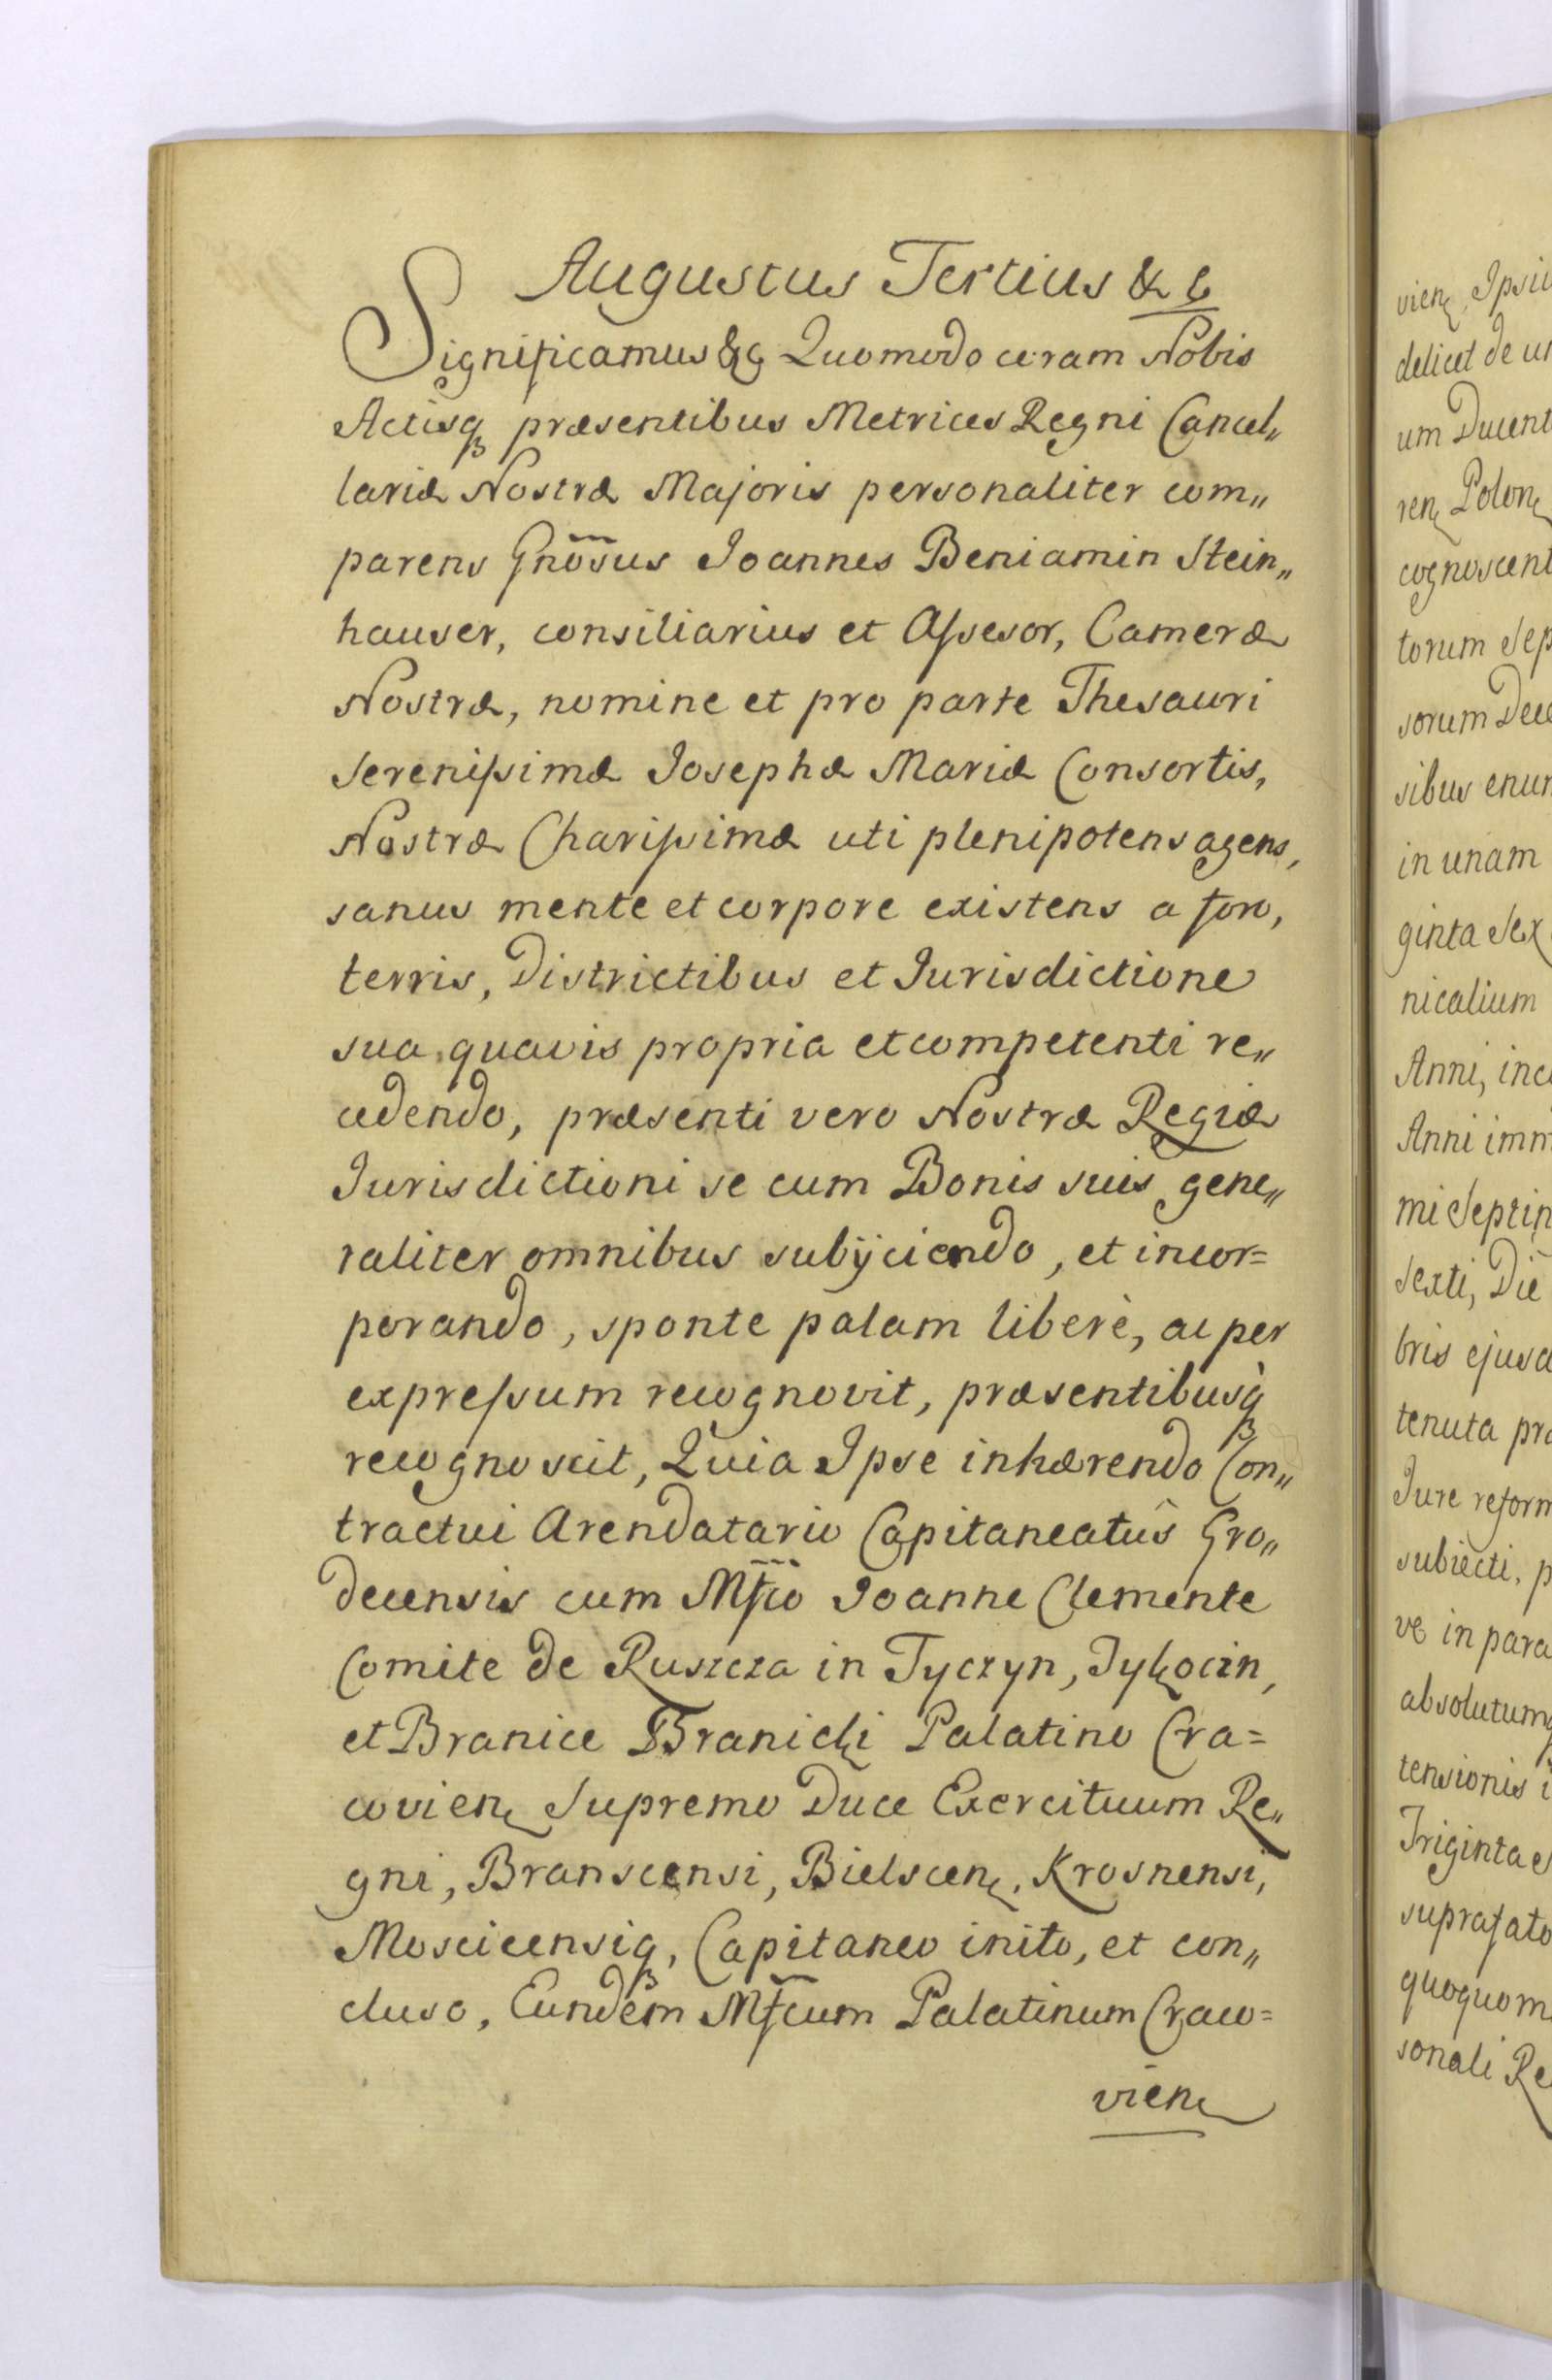 Augustus Tertius &c
Significamus &c Quomodo coram Nobis
Actisq præsentibus Metrices Regni Cancel„
lariæ Nostræ Majoris personaliter com„
parens Gnōsus Joannes Beniamin Stein„
hauser, consiliarius et Assesor, Cameræ
Nostræ, nomine et pro parte Thesauri
Serenissimæ Josephæ Mariæ Consortis,
Nostræ Charissimæ uti plenipotens agens,
sanus mente et corpore existens a foro,
terris, Districtibus et Jurisdictione
sua quavis propria et competenti re„
cedendo, præsenti vero Nostræ Regiæ
Jurisdictioni se cum Bonis suis gene„
raliter omnibus subÿciendo, et incor=
porando, sponte palam liberè, ac per
expressum recognovit, præsentibusq̀
recognoscit, Quia Ipse inhærendo Con„
tractui Arendatario Capitaneatûs Gro„
decensis cum Mfco Joanne Clemente
Comite de Ruszcza in Tyczyn, Tykocin,
et Branice Branicki Palatino Cra=
covien Supremo Duce Exercituum Re„
gni, Branscensi, Bielscen, Krosnensi,
Moscicensiq, Capitaneo inito, et con„
cluso, Eundem Mfcum Palatinum Craco=
vien
vien Ipsiu
delicet de
um Ducent
ren Polon
cognoscent
torum Sep
sorum Dece
sibus enum
in unam
ginta Sex
nicalium
Anni, inc
Anni imm
mi Septin
Sexti, Die
bris ejusd
tenuta pro
Jure reform
subiecti, p
ve in para
absolutum
tensionis i
Triginta
suprafato
quoquom
sonali Re